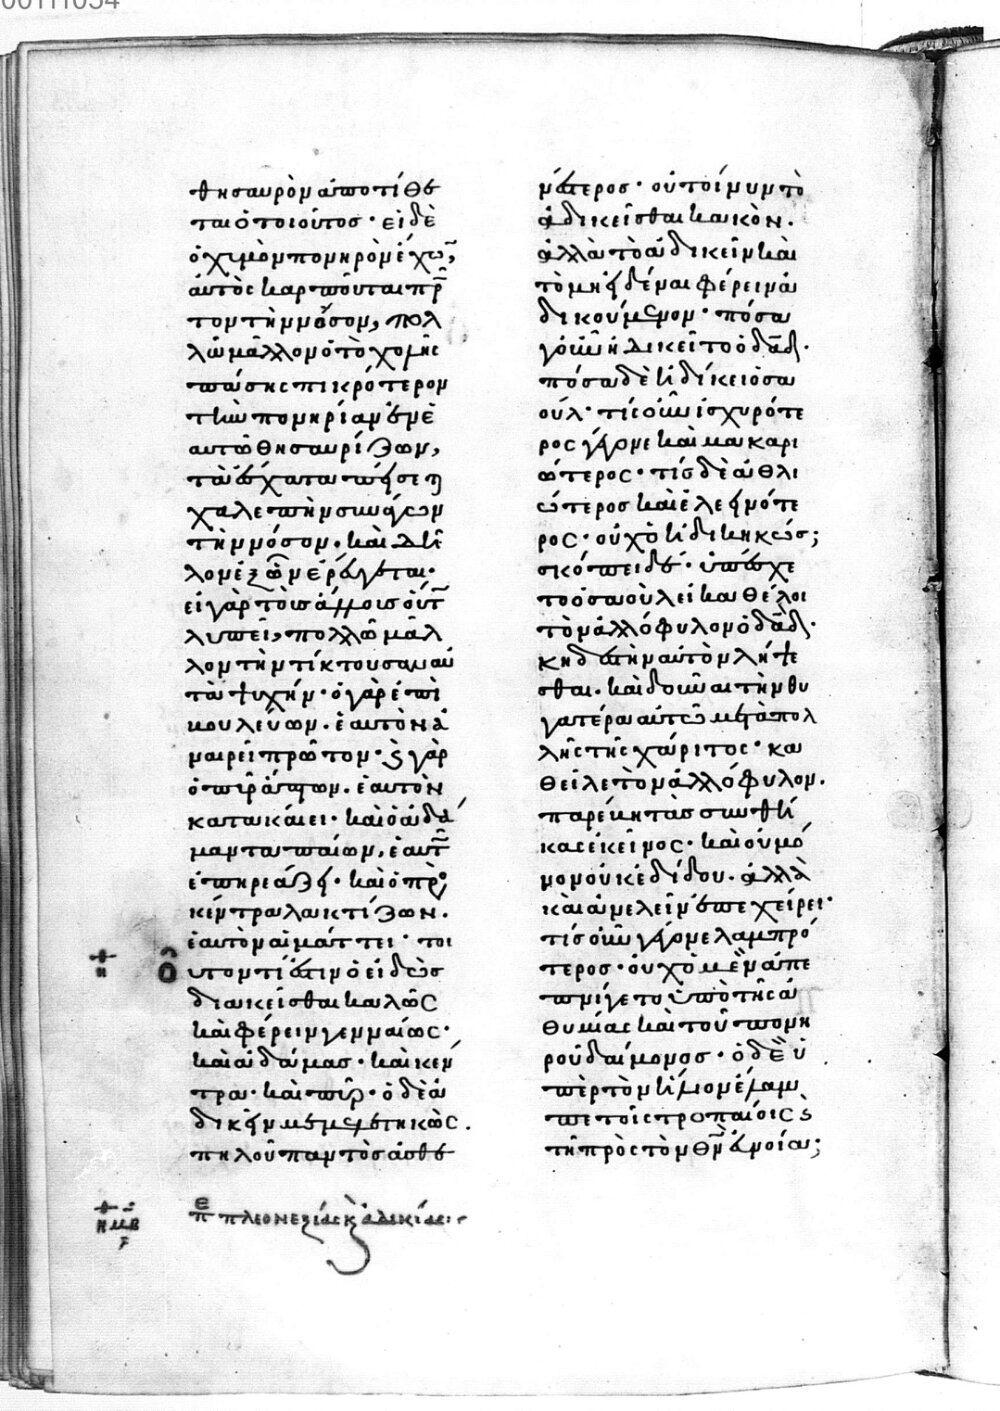 θησαυρὸν ἀποτίθε
ται ὁ τοιοῦτος· εἰ δὲ
ὁ χυμὸν πονηρὸν ἔχων,
αὐτὸς καρποῦται πρ
τον τὴν νόσον, πολ
λῶ μᾶλλον ὁ τὸ χολῆς
πάσης πικρότερον
τὴν πονηρίαν ἐν ἑ
αυτῶ θησαυρίζων,
τὰ ἔσχατα πείσεται
χαλεπὴν συνάγων
τὴν νόσον. καὶ δῆ
λον ἐξ ὧν ἐργάζεται.
εἰ γὰρ τοὺς ἄλλους οὗτ
λυπεῖ, πολλῶ μᾶλ
λον τὴν τίκτουσαν αὐ
τὰ ψυχήν· ὁ γὰρ ἐπι
βουλεύων. ἑαυτὸν ἀ
ναιρεῖ πρῶτον· καὶ γὰρ
ὁ πῦρ ἅπτων. ἑαυτὸν
κατακαίει· καὶ ὁ ἀδά
μαντα παίων, ἑαυτ
ἐπηρεάζει· καὶ ὁ πρὸς
κέντρα λακτίζων.
ἑαυτὸν αἱμάττει· τοι
οῦτόν τί ἐστιν ὁ εἰδὼς
διακεῖσθαι καλῶς
καὶ φέρειν γενναίως·
καὶ ἀδάμας· καὶ κέν
τρα· καὶ πῦρ· ὁ δὲ ἀ
δικεῖν μεμελετηκὼς.
πηλοῦ παντὸς ἀσθε
π ε πλεονεξίας κ ἀδικίας:
νέστερος· οὐ τοίνυν τὸ
ἀδικεῖσθαι κακὸν.
ἀλλὰ τὸ ἀδικεῖν καὶ
τὸ μὴ εἰδέναι φέρειν ἀ
δικούμενον· πόσα
γοῦν ἠδικεῖτο ὁ δαδ·
πόσα δὲ ἠδίκει ὁ σα
ούλ· τίς οὖν ἰσχυρότε
ρος γέγονε καὶ μακαρι
ώτερος· τίς δὲ ἀθλι
ώτερος καὶ ἐλεεινότε
ρος· οὐχ ὁ ἠδικηκώς;
σκόπει δέ· ὑπέσχε
το ὁ σαοὺλ εἰ καθέλοι
τὸν ἀλλόφυλον ὁ δαδ·
κηδεστὴν αὐτὸν λήψε
σθαι. καὶ δοῦναι τὴν θυ
γατέρα αὐτῶ μετὰ πολ
λῆς τῆς χάριτος· κα
θεῖλε τὸν ἀλλόφυλον.
παρέβη τὰς συνθή
κας ἐκεῖνος· καὶ οὐ μό
νον οὐκ ἐδίδου. ἀλλὰ
καὶ ἀνελεῖν ἐπεχείρει·
τίς οὖν γέγονε λαμπρό
τερος· οὐχ ὁ μὲν ἀπε
πνίγετο ὑπὸ τῆς ἀ
θυμίας καὶ τοῦ πονη
ροῦ δαίμονος· ὁ δὲ ὑ
πὲρ τὸν ἥλιον ἔλαμ
πε τοῖς τροπαίοις καὶ
τῆ πρὸς τὸν θν εὐνοία;